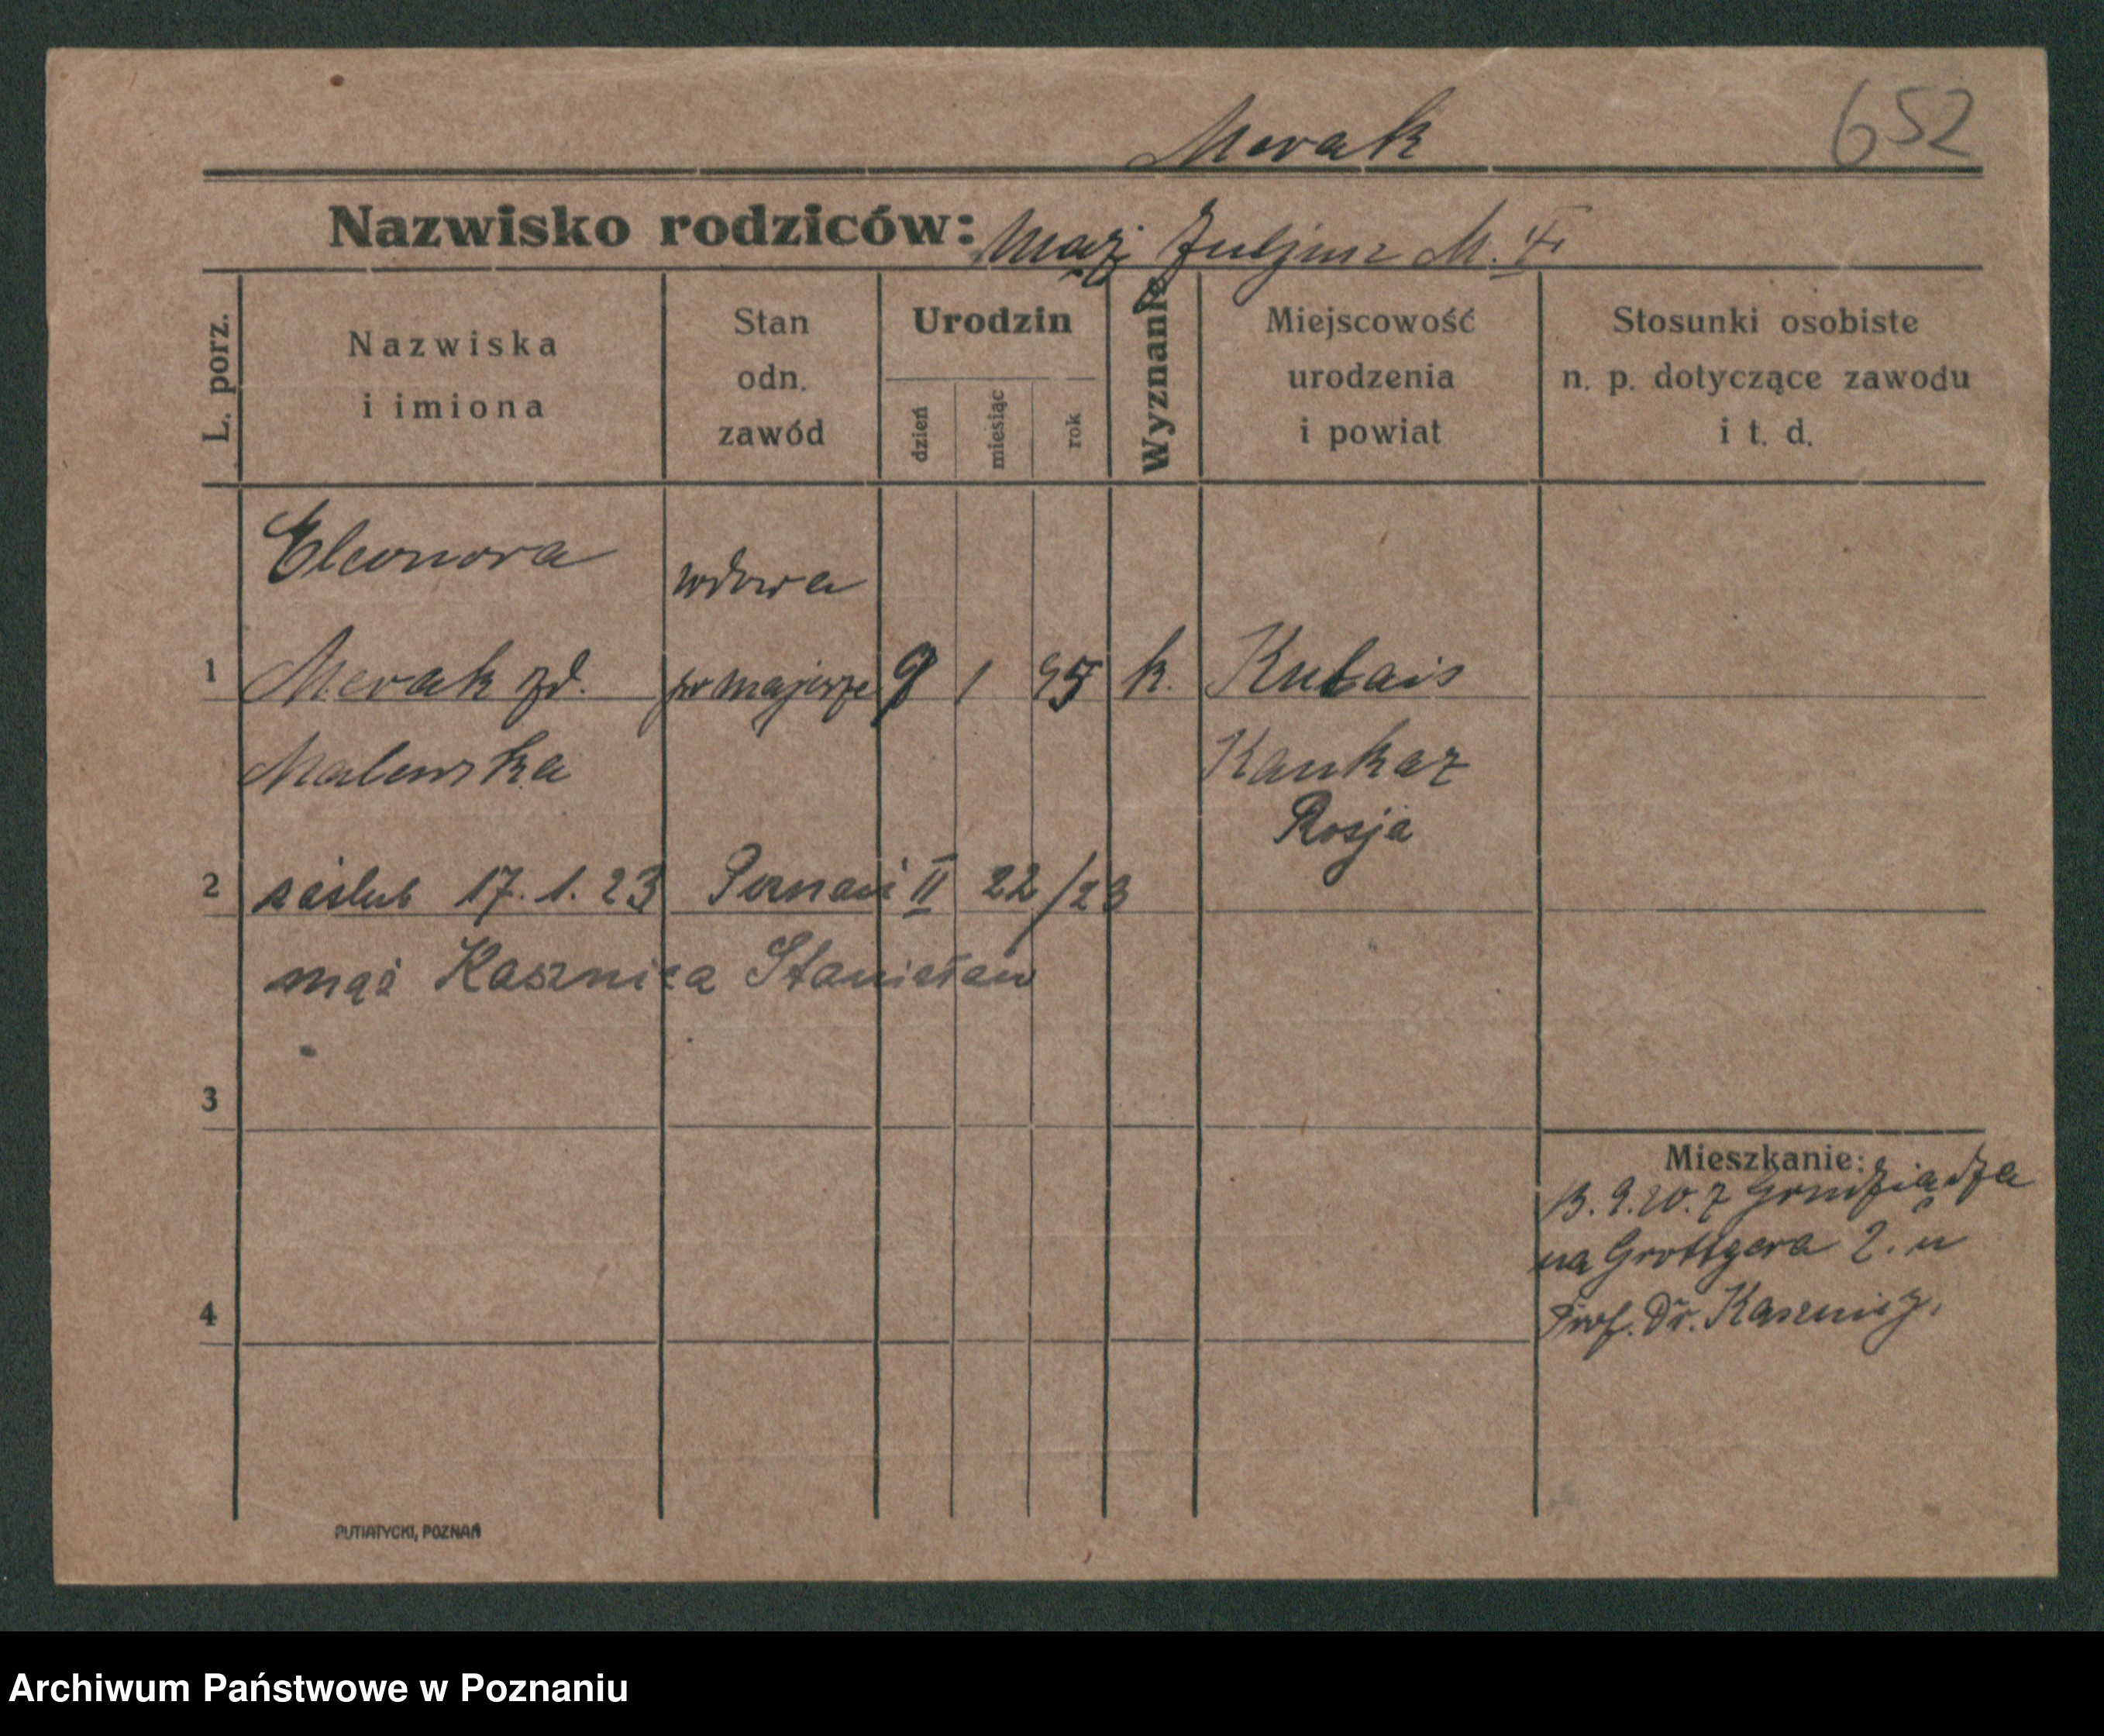 Merak
652
Nazwisko rodziców: Mąż Juljusz M. †
L. porz.
Nazwiska
i imiona
Stan
odn.
zawód
Urodzin
dzień
miesiąc
rok
Wyznanie
Miejscowość
urodzenia
i powiat
Stosunki osobiste
n. p. dotyczące zawodu
i t. d.
Eleonora
wdowa
1 Merak zd. po majorze 9 1 95 k. Kutais
Malewska
Kaukaz
Rosja
2 zaślub 17. 1. 23 Poznań II 22/23
mąż Kasznica Stanisław
3
Mieszkanie:
13. 9. 20. z Grudziądza
na Grottgera 2. u
4 Prof. Dr. Kasznicy.
PUTIATYCKI, POZNAŃ
Archiwum Państwowe w Poznaniu